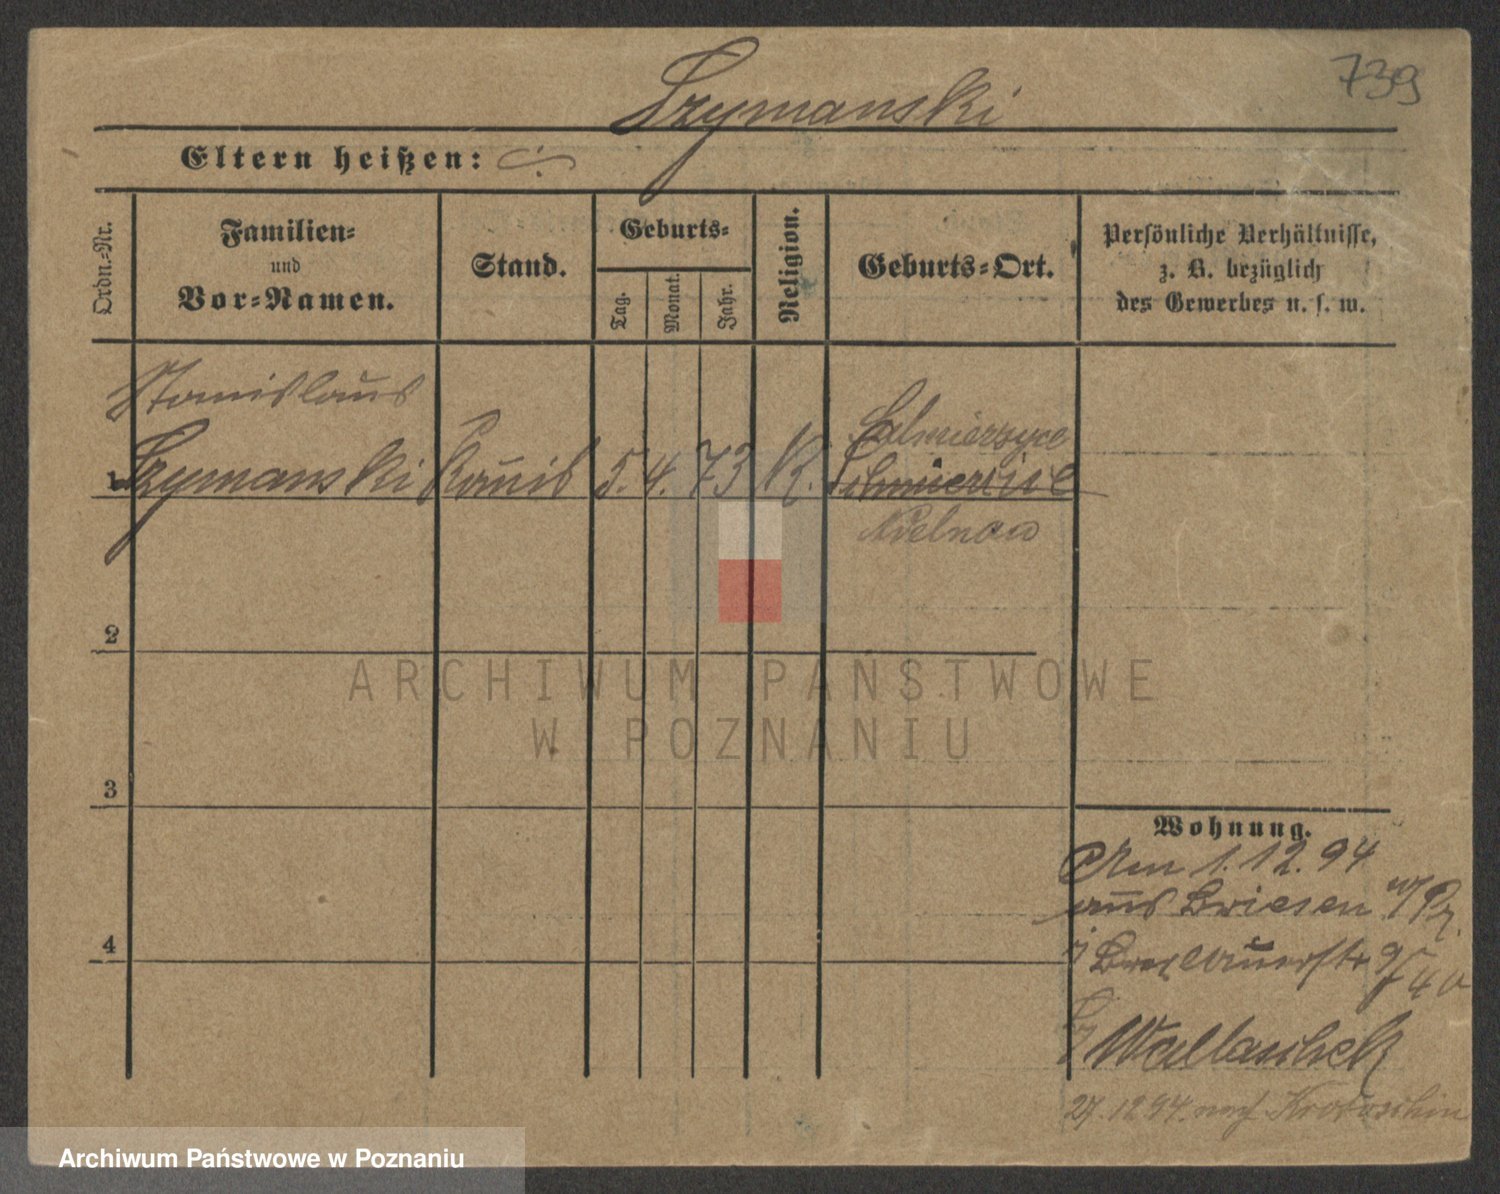 739
Szymanski
Eltern heißen:
Ordn.-Nr.
Familien-
und
Vor-Namen.
Stand.
Geburts-
Tag.
Monat.
Jahr.
Religion.
Geburts-Ort.
Persönliche Verhältnisse,
z. B. bezüglich
des Gewerbes u. s. w.
Stanislaus
1 Szymanski Komis 5. 4. 73 K.
Sulmierzyce
Adelnau
2
3
4
Wohnung.
Am 1.12.94
aus Briesen
Breslauerstr 9
Wallaschek
27.12 94. nach Krotoschin
ARCHIWUM PAŃSTWOWE
W POZNANIU
Archiwum Państwowe w Poznaniu